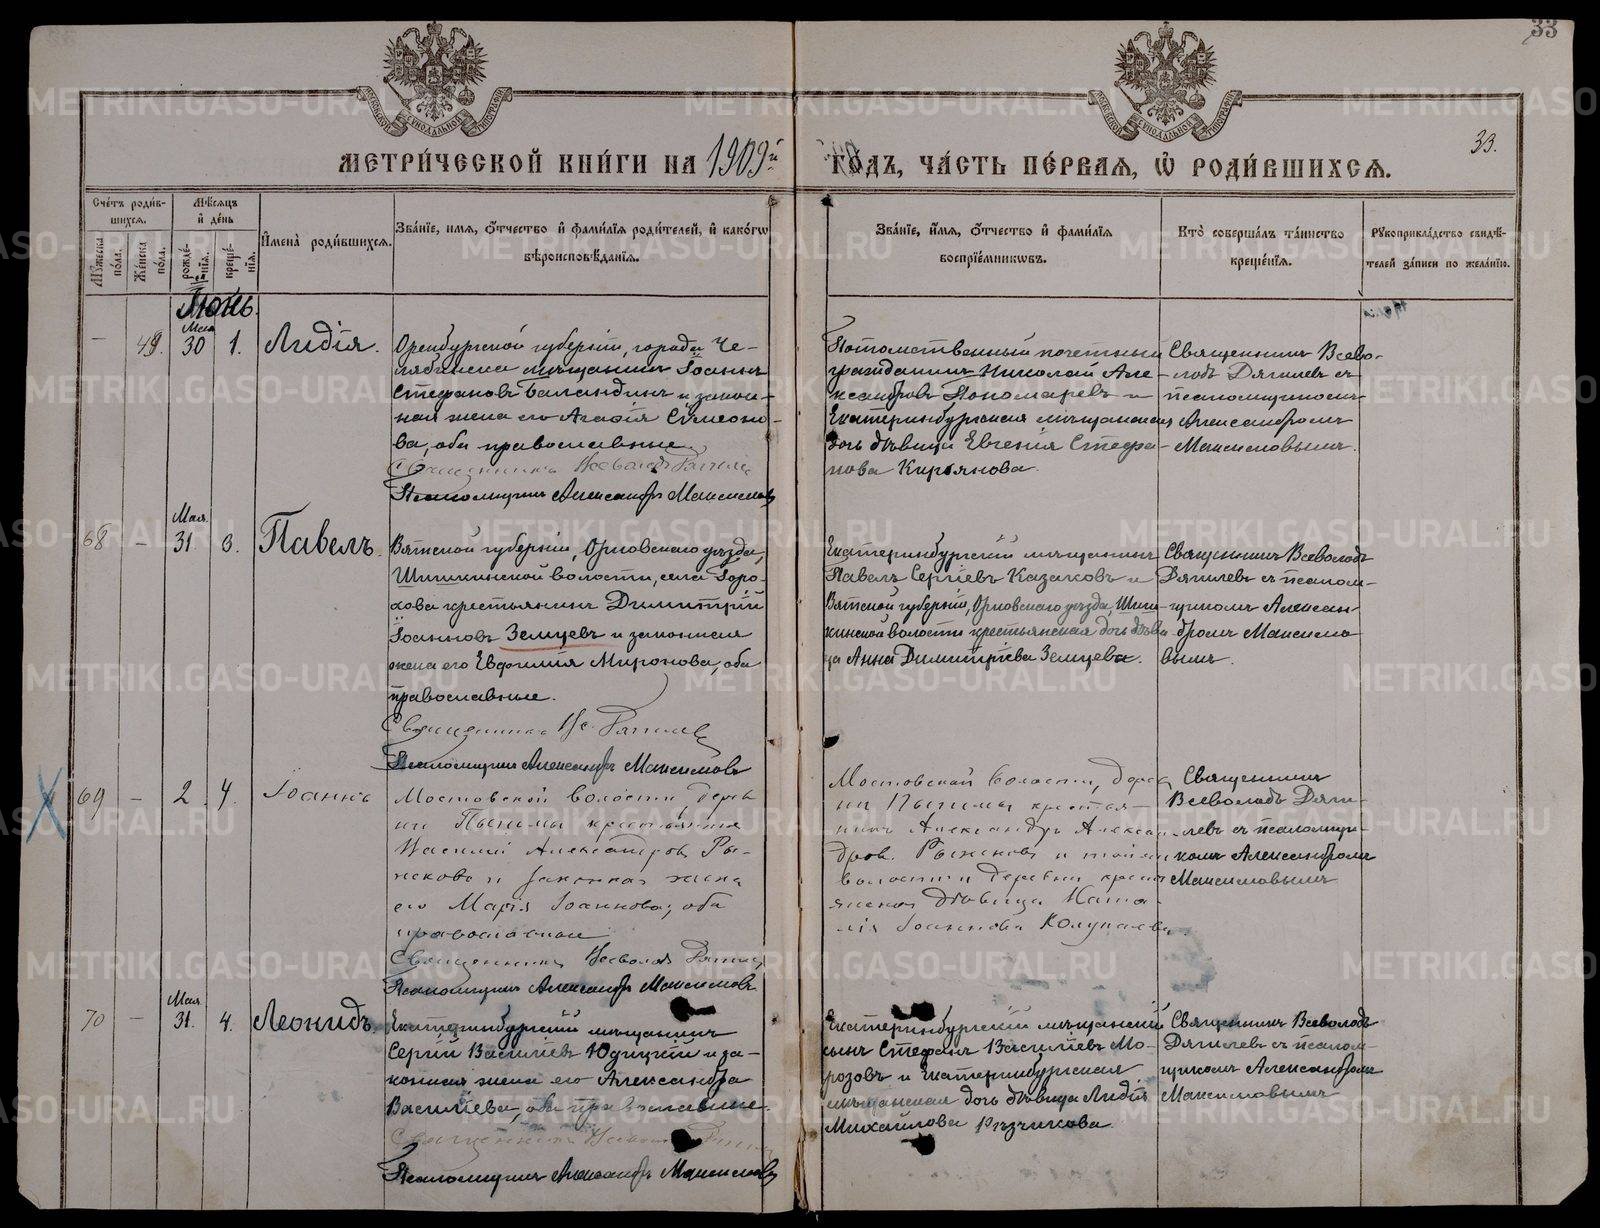 33
33.
МЕТРИ́ЧЕСКОЙ КНИ́ГИ НА 1909й ГО́ДЪ, ЧА́СТЬ ПЕ́РВАЯ, Ѡ РОДИ́ВШИХСЯ.
Сче́тъ роди́в-
шихся.
Му́жеска по́ла.
Же́нска по́ла.
Мѣ́сяцъ
и де́нь
рожде́-
нїя.
креще́-
нїя.
Имена̀ роди́вшихся.
Зва́нїе, имя, о́тчество и фами́лїя роди́телей, и како́гѡ
вѣроисповѣ́данїя.
Зва́нїе, и́мя, о́тчество и фами́лїя
воспрїе́мникѡвъ.
Кто̀ соверша́лъ та́инство
креще́нїя.
Рукоприкла́дство свидѣ́-
телей за́писи по жела́нїю.
Іюнь.
— 49. Мая 30 1. Лидія.
Оренбургской губерніи, города Че-
лябинска мѣщанинъ Іоаннъ
Стефановъ Баландинъ и закон-
ная жена его Агафія Симеоно-
ва, оба православные.
Священникъ Всеволодъ Дягилевъ
Псаломщикъ Александръ Максимовъ
Потомственный почетный
гражданинъ Николай Але-
ксандровъ Пономаревъ и
Екатеринбургская мѣщанская
дочь дѣвица Евгенія Стефа-
нова Кирьянова.
Священникъ Всево-
лодъ Дягилевъ съ
псаломщикомъ
Александромъ
Максимовымъ.
68 — Мая 31. 3. Павелъ.
Вятской губерніи, Орловскаго уѣзда,
Шишкинской волости, села Горо-
хова крестьянинъ Димитрій
Іоанновъ Земцевъ и законная
жена его Евфимія Миронова, оба
православные.
Священникъ Вс. Дягилевъ
Псаломщикъ Александръ Максимовъ
Екатеринбургскій мѣщанинъ
Павелъ Сергіевъ Казаковъ и
Вятской губерніи, Орловскаго уѣзда, Шиш-
кинской волости крестьянская дочь дѣви-
ца Анна Димитріева Земцева.
Священникъ Всеволодъ
Дягилевъ съ псалом-
щикомъ Алексан-
дромъ Максимо-
вымъ.
69 — 2 4. Іоаннъ
Мостовской волости, дерев
ни Пышмы крестьянинъ
Василій Александровъ Ры-
жковъ и законная жена
его Марія Іоаннова, оба
православные
Священникъ Всеволодъ Дягилевъ
Псаломщикъ Александръ Максимовъ
Мостовской волости, дерев
ни Пышмы крестья-
нинъ Александръ Алексан-
дров. Рыжковъ и той же
волости и деревни крест
янская дѣвица Ната-
лія Іоаннова Колупаева
Священникъ
Всеволодъ Дяги-
левъ съ псаломщи-
комъ Александромъ
Максимовымъ
70 — Мая 31. 4. Леонидъ.
Екатеринбургскій мѣщанинъ
Сергій Василіевъ Юдицкій и за-
конная жена его Александра
Василіева, оба православные.
Священникъ Всеволодъ Дягилевъ
Псаломщикъ Александръ Максимовъ
Екатеринбургскій мѣщанскій
сынъ Стефанъ Василіевъ Мо-
розовъ и Екатеринбургская
мѣщанская дочь дѣвица Лидія
Михаилова Рѣзчикова.
Священникъ Всеволодъ
Дягилевъ съ псалом-
щикомъ Александромъ
Максимовымъ